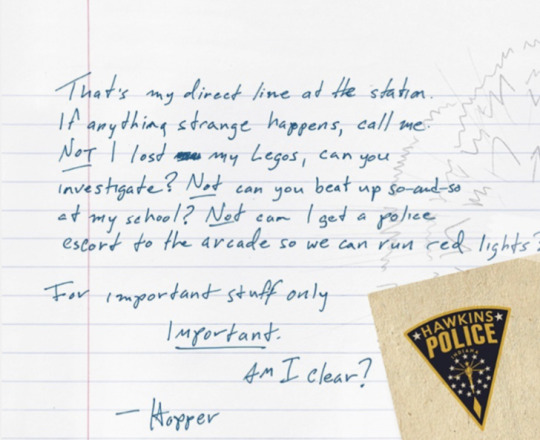 That's my direct line at the station.
If anything strange happens, call me.
NOT I lost my Legos, can you
investigate? Not can you beat up so-and-so
at my school? Not can I get a police
escort to the arcade so we can run red lights?
For important stuff only
Important.
Am I clear?
— Hopper
HAWKINS
POLICE
INDIANA